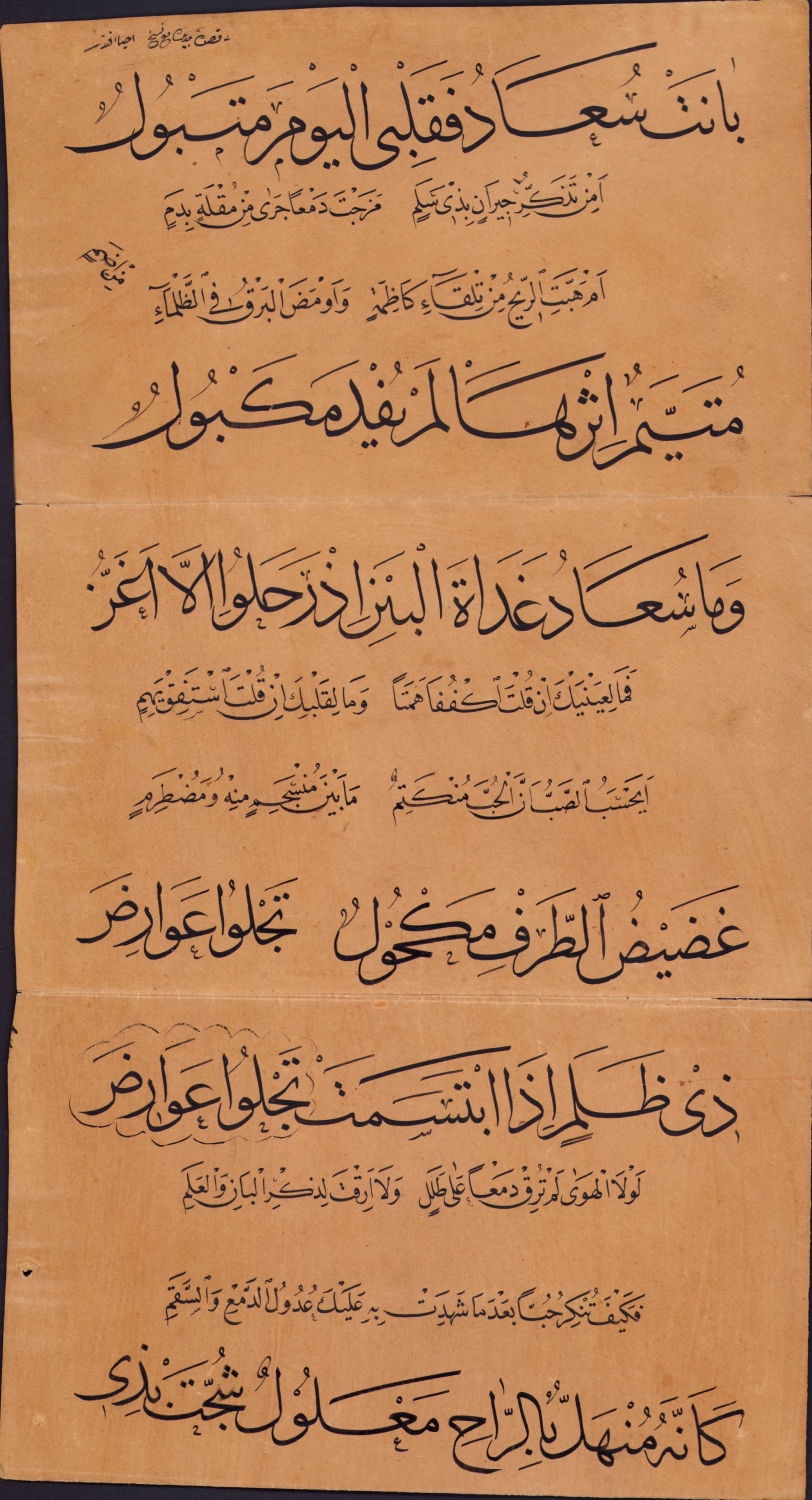 بَانَتْ سُعَادُ فَقَلْبِي الْيَوْمَ مَتْبُولُ
اَمِنْ تَذَكُّرِ جِيرَانٍ بِذِى سَلَمٍ مَزَجْتَ دَمْعًا جَرٰى مِنْ مُقْلَةٍ بِدَمٍ
اَمْ هَبَّتِ الرِّيحُ مِنْ تِلْقَاءِ كَاظِمَةٍ وَاَوْمَضَ الْبَرْقُ فِي الظَّلْمَاءِ
مِنْ اِضَمِ
مُتَيَّمٌ اِثْرَهَا لَمْ يُفْدَ مَكْبُولُ
وَمَا سُعَادُ غَدَاةَ الْبَيْنِ اِذْ رَحَلُوا اِلَّا اَغَنُّ
فَمَا لِعَيْنَيْكَ اِنْ قُلْتَ اكْفُفَا هَمَتَا وَمَا لِقَلْبِكَ اِنْ قُلْتَ اسْتَفِقْ يَهِمِ
اَيَحْسَبُ الصَّبُّ اَنَّ الْحُبَّ مُنْكَتِمٌ مَا بَيْنَ مُنْسَجِمٍ مِنْهُ وَمُضْطَرِمٍ
غَضِيضُ الطَّرْفِ مَكْحُولُ تَجْلُوا عَوَارِضَ
ذِى ظَلْمٍ اِذَا ابْتَسَمَتْ تَجْلُوا عَوَارِضَ
لَوْلَا الْهَوٰى لَمْ تُرِقْ دَمْعًا عَلٰى طَلَلٍ وَلَا اَرِقْتَ لِذِكْرِ الْبَانِ وَالْعَلَمِ
فَكَيْفَ تُنْكِرُ حُبًّا بَعْدَ مَا شَهِدَتْ بِهِ عَلَيْكَ عُدُولُ الدَّمْعِ وَالسَّقَمِ
كَاَنَّهُ مُنْهَلٌ بِالرَّاحِ مَعْلُولُ شُجَّتْ بِذِى